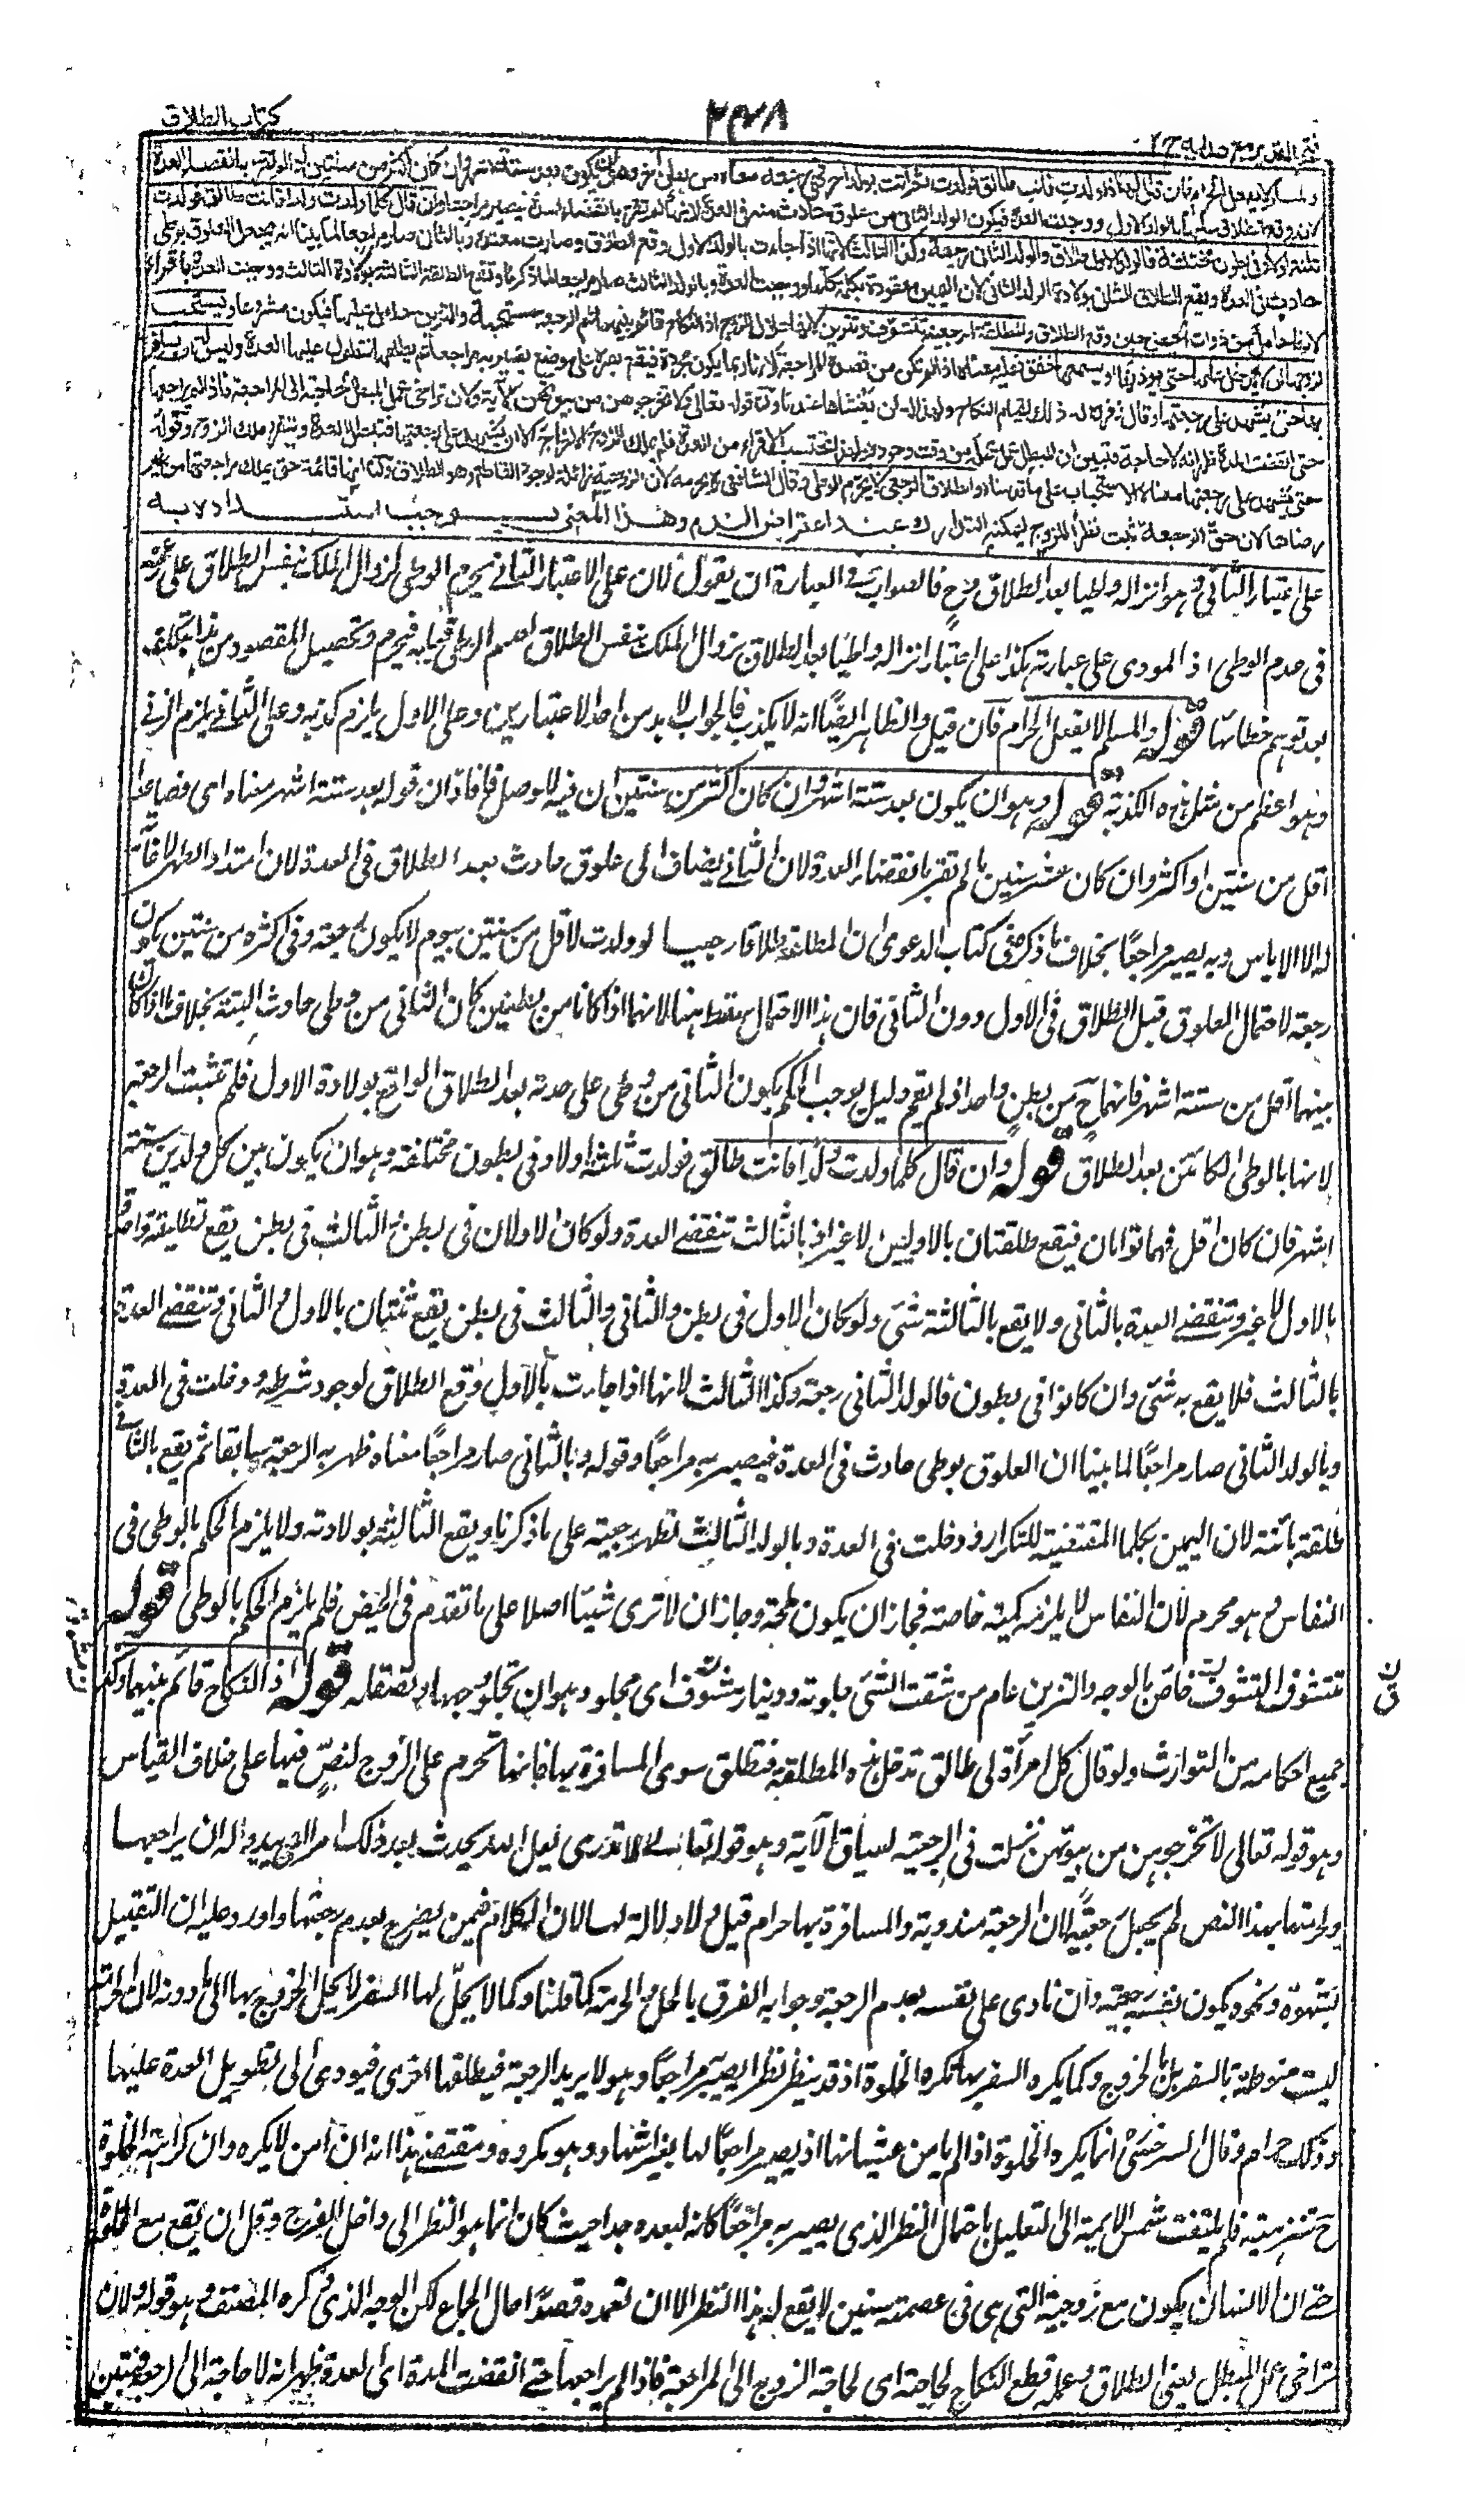 كتاب الطلاق
فتح القدير مع هداية ج ٢
والمسلم لا يفعل الحرام فان قال لها اذا ولدت فانت طالق فولدت ثم اتت بولد اخر فهي رجعة معناه من بطن اخر وهو ان يكون بعد ستة اشهر وان كان اكثر من سنتين اذا لم تقر بانقضاء العدة
لانه وقع الطلاق عليها بالولد الاول ووجبت العدة فيكون الولد الثاني من علوق حادث منه في العدة لانها لم تقر بانقضاء العدة فيصير مراجعا وان قال كلما ولدت ولدا فانت طالق فولدت
ثلثة اولاد في بطون مختلفة فالولد الاول طلاق والولد الثاني رجعة وكذا الثالث لانها اذا جاءت بالولد الاول وقع الطلاق وصارت معتدة وبالثاني صار مراجعا لما بينا انه يجعل العلوق بوطي
حادث في العدة ويقع الطلاق الثاني بولادة الولد الثاني لان اليمين معقودة بكلمة كلما ووجبت العدة وبالولد الثالث صار مراجعا لما ذكرنا وتقع الطلقة الثالثة بولادة الثالث ووجبت العدة بالاقراء
لانها حامل من ذوات الحيض حين وقع الطلاق والمطلقة الرجعية تتشوف وتتزين لانها حلال للزوج اذ النكاح قائم بينهما ثم الرجعة مستحبة والتزين حامل له عليها فيكون مشروعا ويستحب
لزوجها ان لا يدخل عليها حتى يؤذنها او يسمعها خفق نعليه معناه اذا لم تكن من قصده المراجعة لانها ربما يكون مجردة فيقع بصره على موضع يصير به مراجعا ثم يطلقها فتطول عليها العدة وليس له ان يسافر
بها حتى يشهد على رجعتها وقال زفر له ذلك لقيام النكاح ولهذا له ان يغشاها عندنا ولنا قوله تعالى ولا تخرجوهن من بيوتهن الآية ولان تراخي عمل المبطل لحاجته الى المراجعة فاذا لم يراجعها
حتى انقضت المدة ظهر انه لا حاجة له فتبين ان المبطل عمل عمله من وقت وجوده ولهذا تحتسب الاقراء من العدة فلم يملك الزوج الاخراج الا ان يشهد على رجعتها فتبطل العدة ويتقرر ملك الزوج وقوله
حتى يشهد على رجعتها معناه الاستحباب على ما قدمناه والطلاق الرجعي لا يحرم الوطي وقال الشافعي رح يحرمه لان الزوجية زائلة لوجود القاطع وهو الطلاق ولنا انها قائمة حتى يملك مراجعتها من غير
رضاها لان حق الرجعة ثبت نظرا للزوج ليمكنه التدارك عند اعتراض الندم وهذا المعنى يوجب استبداده به
على اعتبار الثاني وهو انزاله واطيا بعد الطلاق فالصواب في العبارة ان يقول لان على الاعتبار الثاني يحرم الوطي لزوال الملك بنفس الطلاق على
في عدم الوطي اذ المودى على عبارته هكذا على اعتبار انزاله واطيا بعد الطلاق يزول الملك بنفس الطلاق لعدم الوطي قبله فيحرم وتحصيل المقصود من هذا بتكلف
بعد توهم خطائها قوله والمسلم لا يفعل الحرام فان قيل والظاهر ايضا انه لا يكذب فالجواب لا بد من احد الاعتبارين وعلى الاول يلزم كذبه وعلى الثاني يلزم الزنى
وهو اعظم من مثل هذه الكذبة قوله وهو ان يكون بعد ستة اشهر وان كان اكثر من سنتين ان فيه للوصل فافاد ان قوله بعد ستة اشهر معناه اى فصاعدا
اقل من سنتين او اكثر وان كان عشر سنين ما لم تقر بانقضاء العدة ولان الثاني يضاف الى علوق حادث بعد الطلاق في العدة لان امتداد الطهر لا غاية
له الا الاياس وبه يصير مراجعا بخلاف ما ذكر في كتاب الدعوى ان المطلقة طلاقا رجعيا لو ولدت لاقل من سنتين بيوم لا يكون رجعة وفي اكثر من سنتين يكون
رجعة لاحتمال العلوق قبل الطلاق في الاول دون الثاني فان هذا الاحتمال سقط هنا لانهما اذا كانا من بطنين كان الثاني من وطي حادث البتة بخلاف ما اذا كان
بينهما اقل من ستة اشهر فانهما ح من بطن واحد اذ لم يقم دليل يوجب الحكم بكون الثاني من وطي على حدته بعد الطلاق الواقع بولادة الاول فلم تثبت الرجعة
لانها بالوطي الكائن بعد الطلاق قوله وان قال كلما ولدت ولدا فانت طالق فولدت ثلثة اولاد في بطون مختلفة وهو ان يكون بين كل ولدين ستة
اشهر فان كان اقل فهما توامان فيقع طلقتان بالاوليين لا غير اذ بالثالث تنقضى العدة ولو كان الاولان في بطن والثالث في بطن يقع تطليقة واحدة
بالاول لا غير وتنقضى العدة بالثاني ولا يقع بالثالثة شئ ولو كان الاول في بطن والثاني والثالث في بطن يقع ثنتان بالاول والثاني وتنقضى العدة
بالثالث فلا يقع به شئ وان كانوا في بطون فالولد الثاني رجعة وكذا الثالث لانها اذا جاءت بالاول وقع الطلاق لوجود شرطه ودخلت في العدة
وبالولد الثاني صار مراجعا لما بينا ان العلوق بوطي حادث في العدة فيصير به مراجعا وقوله وبالثاني صار مراجعا معناه ظهر به الرجعة سابقا ثم يقع بالثاني
طلقة ثانية لان اليمين بكلما المقتضية للتكرار ودخلت في العدة وبالولد الثالث تظهر رجعيته على ما ذكرنا ويقع الثالثة بولادته ولا يلزم الحكم بالوطي في
النفاس وهو محرم لان النفاس لا يلزمه كمية خاصة فجاز ان يكون لمحة وجاز ان لا ترى شيئا اصلا على ما تقدم في الحيض فلم يلزم الحكم بالوطي قوله
تتشوف التشوف خاص بالوجه والتزين عام من شفت الشئ جلوته ودينار مشوف اى مجلو وهو ان تجلو وجهها وتصقله قوله اذ النكاح قائم بينهما وكذا
جميع احكامه من التوارث ولو قال كل امرأة لى طالق تدخل هذه المطلقة فتطلق سوى المسافرة بها فانها تحرم على الزوج لنص فيها على خلاف القياس
وهو قوله تعالى لا تخرجوهن من بيوتهن نزلت في الرجعية لسياق الآية وهو قوله تعالى لا تدرى لعل الله يحدث بعد ذلك امرا اى يبدو له ان يراجعها
ولحرمتها بهذا النص لم يجعل رجعة لان الرجعة مندوبة والمسافرة بها حرام قيل ولا دلالة لها لان الكلام فيمن يصرح بعدم رجعتها واورد عليه ان التقبيل
بشهوة ونحوه يكون بنفسه رجعة وان نادى على نفسه بعدم الرجعة وجوابه الفرق بالحل والحرمة كما قلنا وكما لا يحل لها السفر لا يحل الخروج بها الى ما دونه لان الحرمة
ليست منوطة بالسفر بل بالخروج وكما يكره السفر بها تكره الخلوة اذ قد ينظر نظرا يصير مراجعا وهو لا يريد الرجعة فيطلقها اخرى فيودى الى تطويل العدة عليها
وذلك حرام وقال السرخسى انما يكره الخلوة اذا لم يامن غشيانها اذ يصير مراجعا لها بغير اشهاد وهو مكروه ومقتضى هذا انه ان امن لا يكره وان كراهة الخلوة
ح تنزيهية فلم يلتفت شمس الايمة الى التعليل باحتمال النظر الذى يصير به مراجعا كانه لبعده جدا حيث كان انما هو النظر الى داخل الفرج وقل ان يقع مع الخلوة
حتى ان الانسان يكون مع زوجته التى هى في عصمته سنين لا يقع له هذا النظر الا ان تعمده قصدا حال الجماع لكن الوجه الذى ذكره المصنف وهو قوله ولان
تراخى عمل المبطل يعنى الطلاق وعمله قطع النكاح لحاجته اى لحاجة الزوج الى المراجعة فاذا لم يراجعها حتى انقضت المدة اى العدة ظهر انه لا حاجة الى الرجعة فتبين